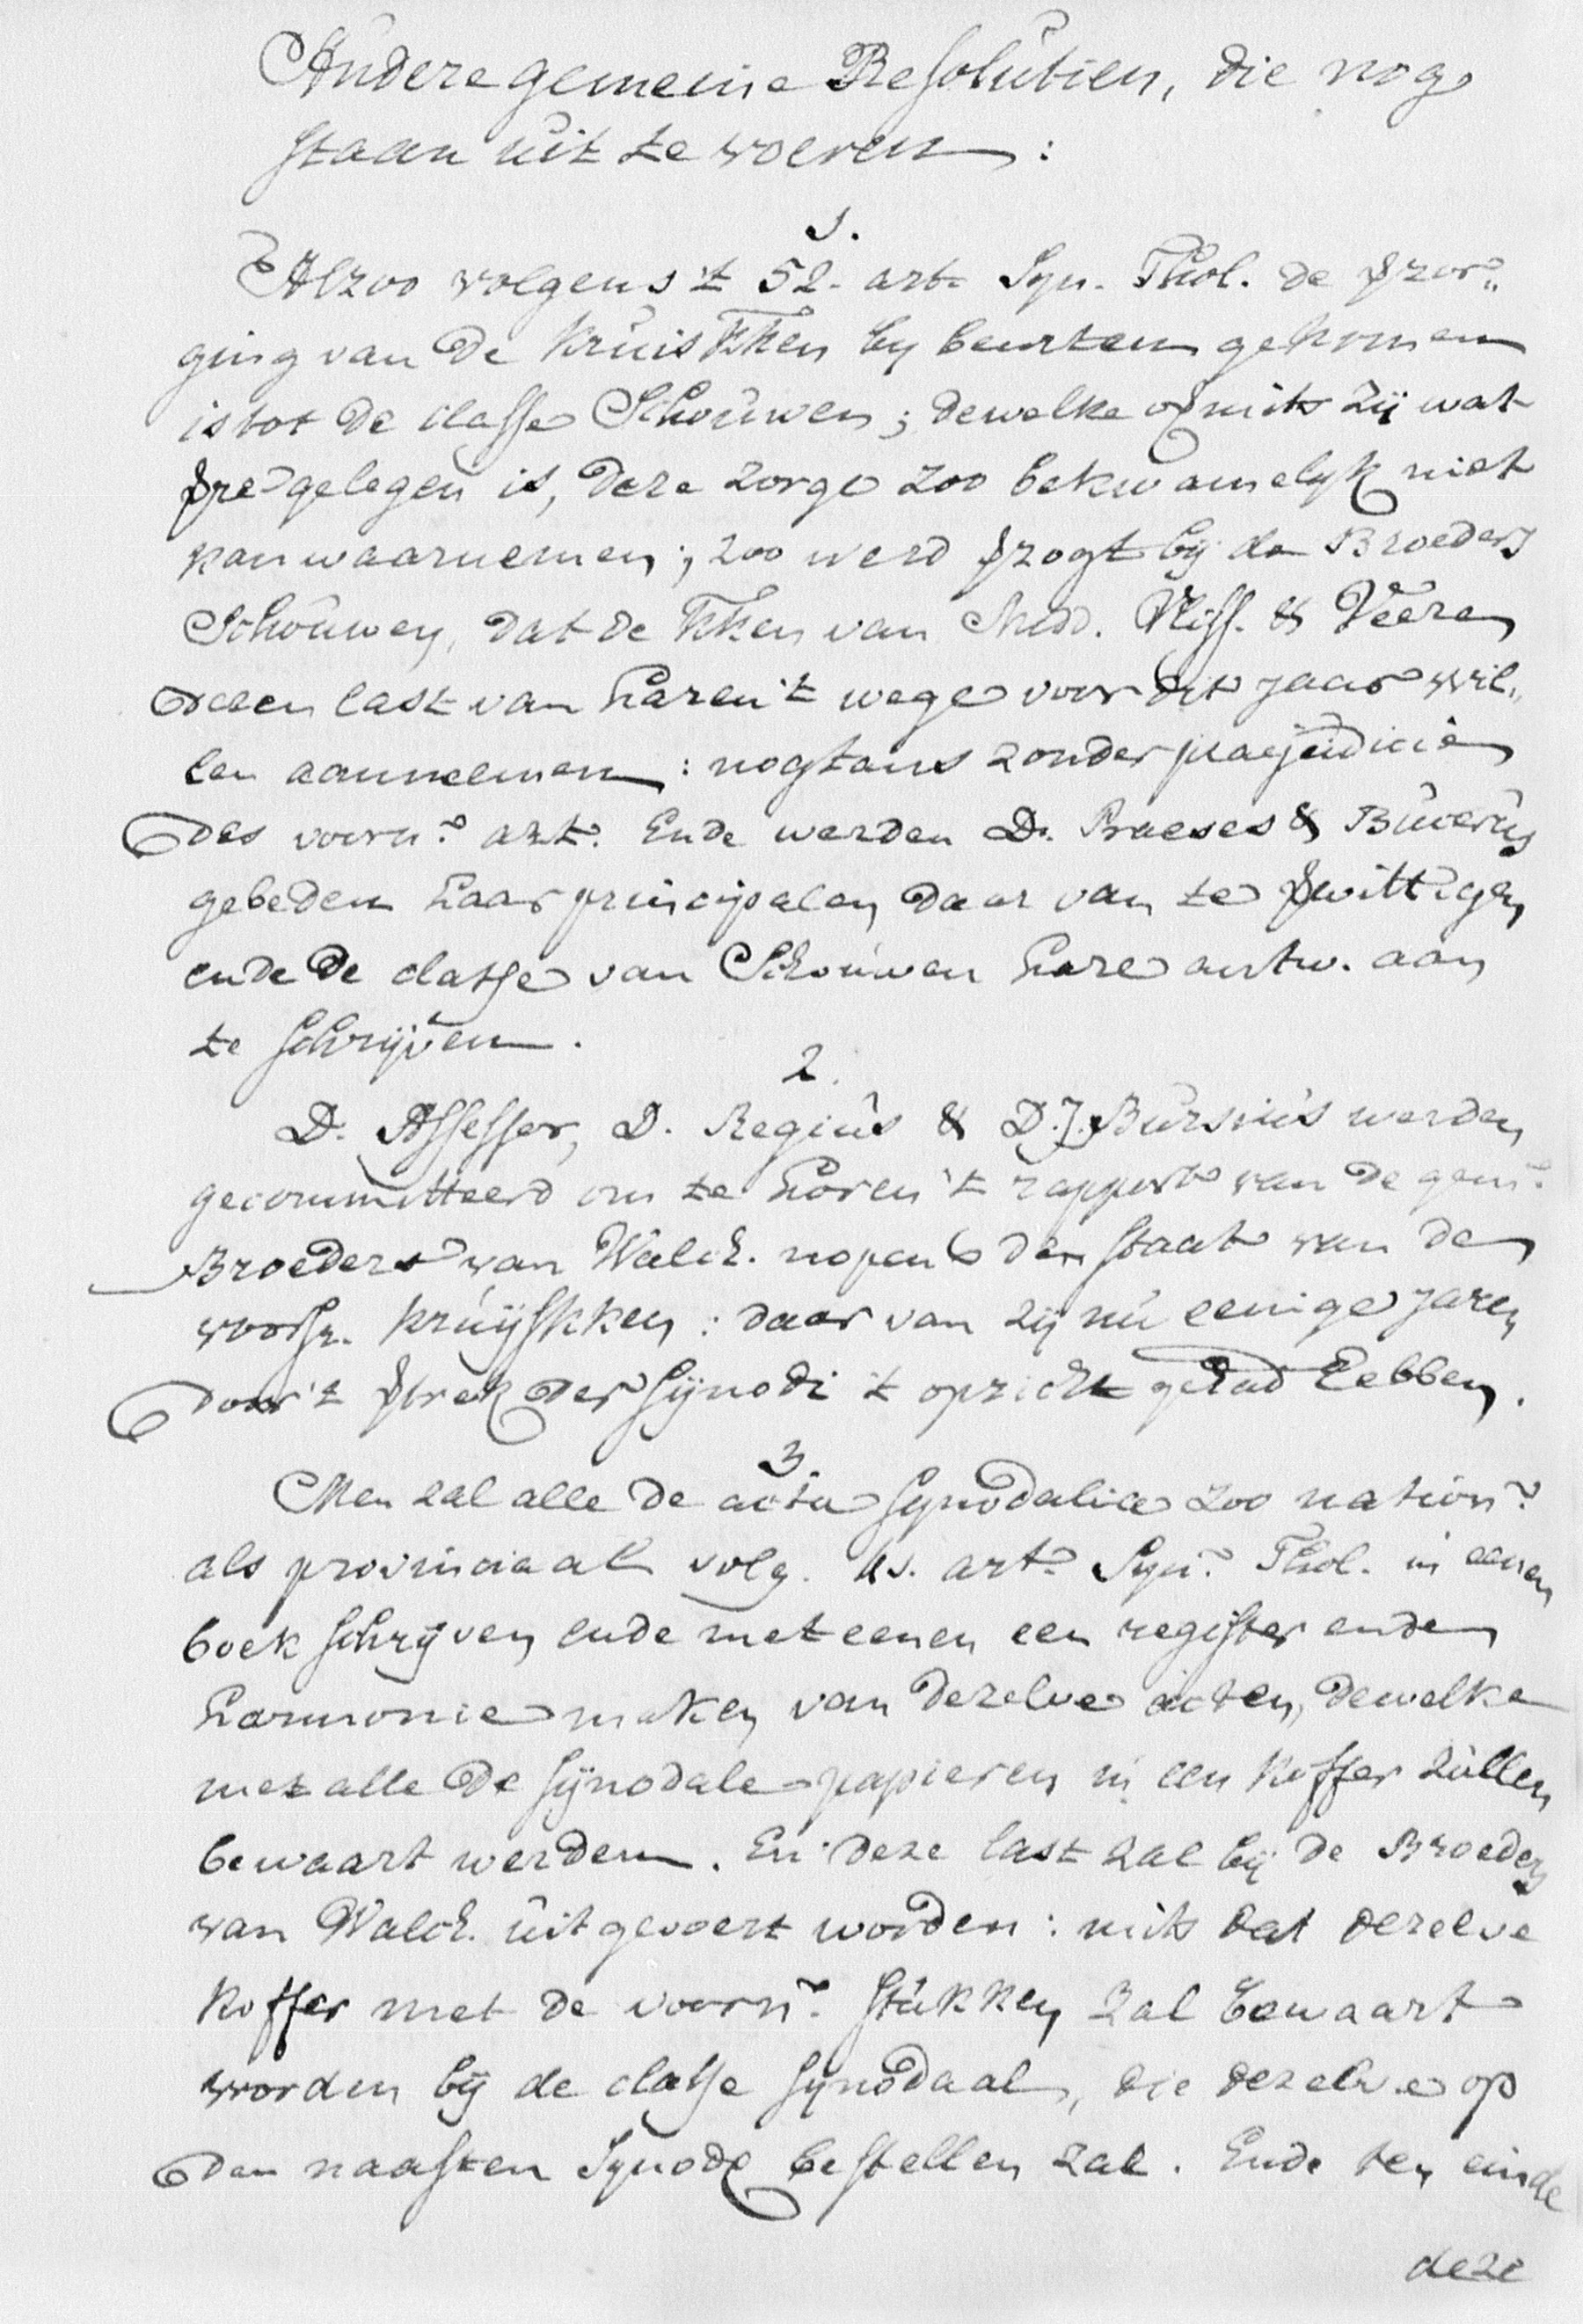 Andere gemeine Resolutien, die nog
staan uit te voeren :
1.
Alzoo volgens 't 52. art. Syn. Thol. de verzor„
ging van de Kruis KKen by beurten gekomen
is tot de classe Schouwen ; dewelke vermits zij wat
verre gelegen is, deze zorge zoo bekwamelyk niet
kan waarnemen ; zoo werd verzogt bij de Broeders
Schouwen, dat de KKen van Midd. Vliss. & Veere
deen last van haren 't wege voor dit jaar wil„
len aannemen : nogtans zonder praejudicie
des voorn. art. Ende werden D. Praeses & Buverus
gebeden haar principalen daar van te verwittigen
ende de classe van Schouwen hare antw. aan
te schrijven.
2.
D. Assessor, D. Regius & D. J. Bursius werden
gecommitteerd om te horen 't rapport van de gem.
Broeders van Walch. nopens den staat van de
voorsz. kruijskken : daar van zij nu eenige jaren
door 't gebrek der Sijnodi 't opzicht gehad hebben.
3.
Men zal alle de acta Synodalia zoo nation.
als provinciaal volg. 45. art. Syn. Thol. in eenen
boek schrijven ende met eenen een register ende
harmonie maken van dezelve acten, dewelke
met alle de sijnodale papieren in een koffer zullen
bewaart werden. En deze last zal bij de Broeders
van Walch. uitgevoert worden : mits dat dezelve
koffer met de voorn. stukken zal bewaart
worden bij de classe synodaal, die dezelve op
den naasten Synode bestellen zal. Ende ten einde
deze